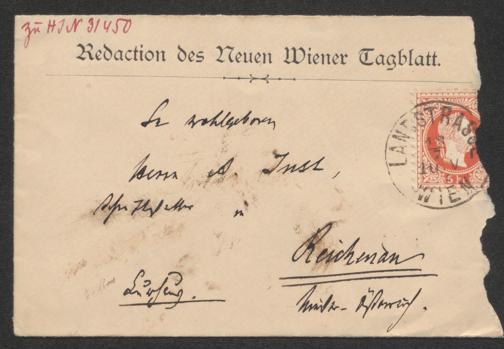 zu HIN 31450
Redaction des Neuen Wiener Tagblatt.
Sr wohlgeboren
Herrn A. Just,
Schriftsteller in
Reichenau
Nieder-Österreich.
LANDSTRASSE
WIEN